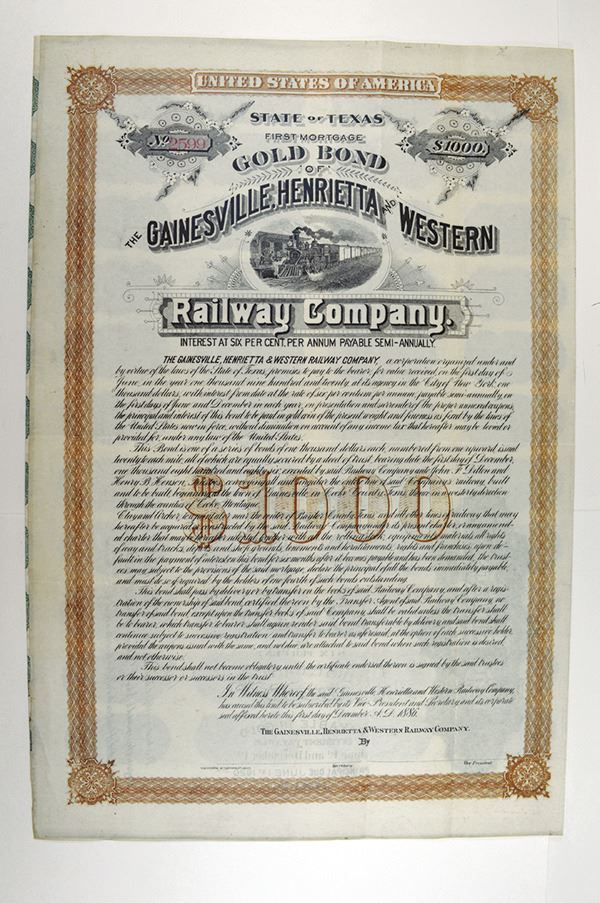 UNITED STATES OF AMERICA
STATE OF TEXAS
No. 2599
$1000.
FIRST MORTGAGE
GOLD BOND
OF
THE GAINESVILLE, HENRIETTA AND WESTERN
Railway Company.
INTEREST AT SIX PER CENT. PER ANNUM PAYABLE SEMI-ANNUALLY.
THE GAINESVILLE, HENRIETTA & WESTERN RAILWAY COMPANY, a corporation organized under and
by virtue of the laws of the State of Texas, promises to pay to the bearer, for value received, on the first day of
June, in the year one thousand nine hundred and twenty, at its agency in the City of New York, one
thousand dollars, with interest from date at the rate of six per centum per annum, payable semi-annually, on
the first days of June and December in each year, on presentation and surrender of the proper annexed coupons,
the principal and interest of this bond to be paid in gold coin of the present weight and fineness as fixed by the laws of
the United States now in force, without diminution on account of any income tax that hereafter may be levied or
provided for under any law of the United States.
This Bond is one of a series of bonds of one thousand dollars each, numbered from one upward, issued
to each mile, all of which are equally secured by a deed of trust, bearing date the first day of December,
one thousand eight hundred and eighty six, executed by said Railway Company unto John F. Dillon and
Henry B. Henson, all and singular the entire line of said Company's railway built
and to be built, beginning at the town of Gainesville in Cooke County, Texas, thence in a westerly direction
through the counties of Cooke, Montague,
Clay and Archer, to a point at or near the center of Baylor County, Texas, and all other lines of railway that may
hereafter be acquired or constructed by the said Railway Company under its present charter, or any amend-
ed charter that may hereafter with all the rolling stock, equipment, materials, rights
of way and tracks, depots and shop grounds, tenements and hereditaments, rights and franchises. Upon de-
fault in the payment of interest on this bond for six months after it becomes payable and has been demanded, the trust-
ees may, subject to the provisions of the said mortgage, declare the principal of all the bonds immediately payable,
and must do so if required by the holders of one fourth of such bonds outstanding.
This bond shall pass by delivery or by transfer on the books of said Railway Company, and after a regis-
tration of the ownership of said bond, certified thereon by the Transfer Agent of said Railway Company, no
transfer of said bond, except upon the transfer books of said Company, shall be valid unless the transfer shall
be to bearer, which transfer to bearer shall again render said bond transferable by delivery, and said bond shall
continue subject to successive registrations and transfers to bearer as aforesaid, at the option of each successive holder,
provided the coupons issued with the same, and not due, are attached to said bond when such registration is desired,
and not otherwise.
This bond shall not become obligatory until the certificate endorsed thereon is signed by the said trustees
or their successor or successors in the trust.
In Witness Whereof the said Gainesville, Henrietta and Western Railway Company,
has caused this bond to be subscribed by its Vice-President and Secretary and its corporate
seal affixed hereto this first day of December A.D. 1886.
THE GAINESVILLE, HENRIETTA & WESTERN RAILWAY COMPANY.
By
Secretary.
Vice President
$1000